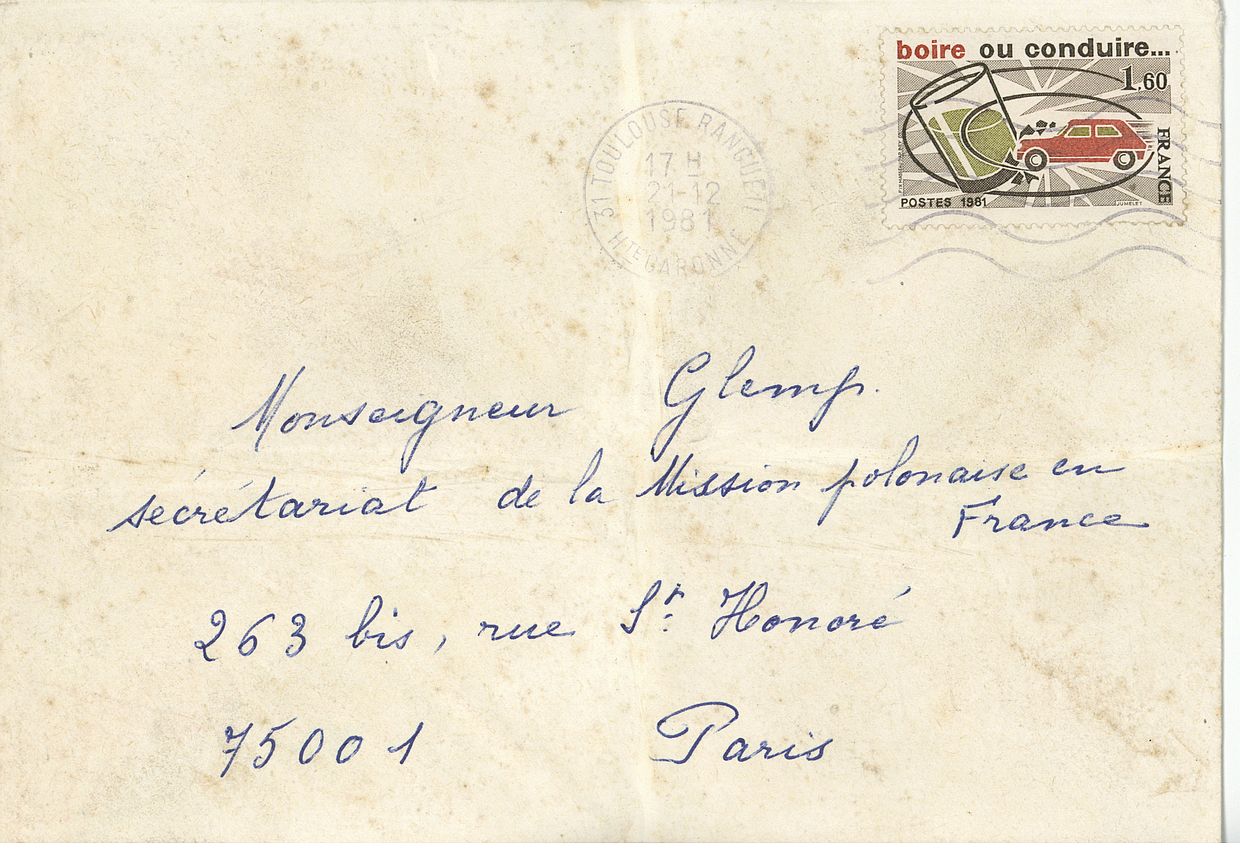 boire ou conduire...
1,60
FRANCE
POSTES 1981
JUMELET
31 TOULOUSE RANGUEIL
17 H
21-12
1981
HTE GARONNE
Monseigneur Glemp.
sécrétariat de la Mission polonaise en
France
263 bis, rue St. Honoré
75001 Paris